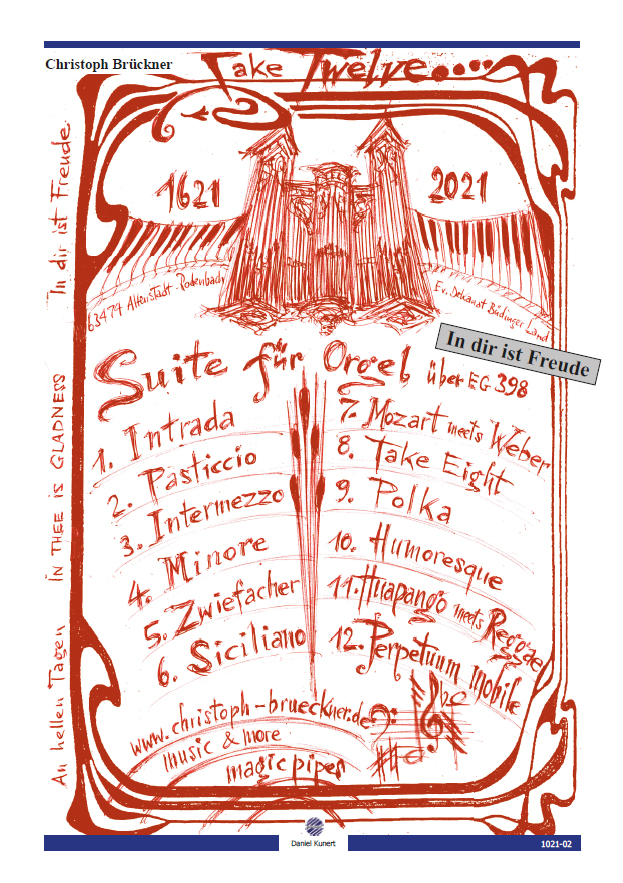 Christoph Brückner
Take Twelve....
1621
2021
63474 Altenstadt-Rodenbach
Ev. Dekanat Büdinger Land
In dir ist Freude
Suite für Orgel über EG 398
1. Intrada
2. Pasticcio
3. Intermezzo
4. Minore
5. Zwiefacher
6. Siciliano
7. Mozart meets Weber
8. Take Eight
9. Polka
10. Humoresque
11. Huapango meets Reggae
12. Perpetuum mobile
www.christoph-brueckner.de
music & more
magic pipes
In dir ist Freude
IN THEE IS GLADNESS
An hellen Tagen
Daniel Kunert
1021-02